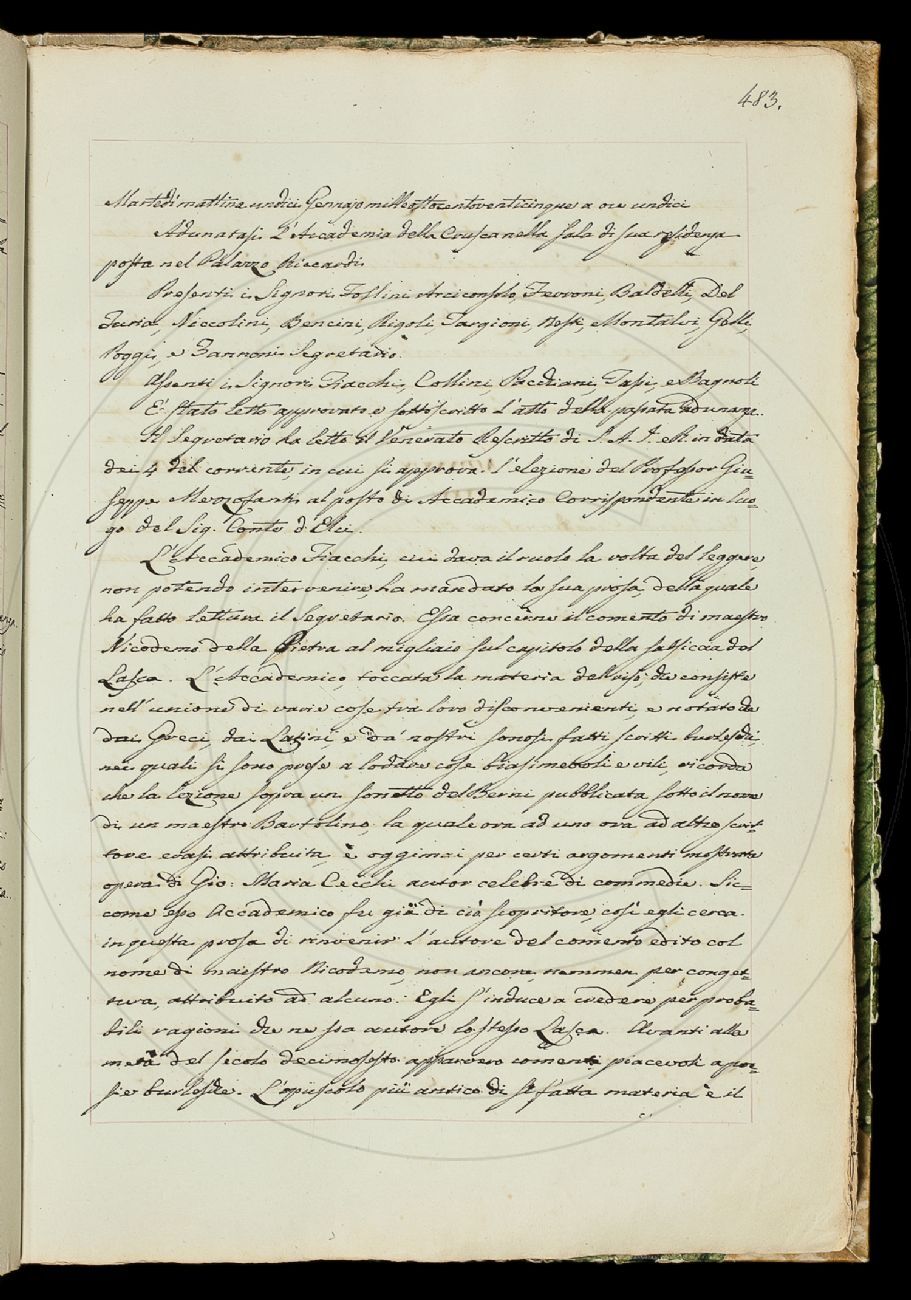 483.
Martedì mattina undici Gennajo mille ottocentoventicinque a ore undici
Adunatasi l'Accademia della Crusca nella sala di sua residenza
posta nel Palazzo Riccardi.
Presenti i Signori Follini Arciconsolo, Ferroni, Baldelli, Del
Furia, Niccolini, Bencini, Rigoli, Targioni, Nesti, e Montalvi, Gelli,
Poggi, e Zannoni Segretario.
Assenti i Signori Fiacchi, Collini, Pucciani, Tassi, e Bagnoli
E' stato letto approvato, e sottoscritto l'atto della passata adunanza.
Il Segretario ha letto il Venerato Rescritto di S. A. I. e R. in data
dei 4 del corrente, in cui si approva l'elezione del Professor Giu=
seppe Mezzofanti al posto di Accademico Corrispondente in luo=
go del Sig. Conte d'Elci.
L'Accademico Fiacchi, cui dava il ruolo la volta del leggere,
non potendo intervenire, ha mandato la sua prosa, della quale
ha fatto lettura il Segretario. Essa concerne il comento di maestro
Nicodemo della Pietra al migliaio sul capitolo della salsiccia del
Lasca. L'Accademico, toccata la materia del riso, che consiste
nell'unione di varie cose tra loro disconvenienti, e notato che
dai Greci, dai Latini, e da' nostri sonosi fatti scritti burleschi,
nei quali si sono prese a lodare cose biasimevoli e vili, ricorda
che la lezione sopra un sonetto del Berni pubblicata sotto il nome
di un maestro Bartolino, la quale ora ad uno ora ad altro scrit=
tore erasi attribuita, è oggimai per certi argomenti mostrata
opera di Gio: Maria Cecchi autor celebre di commedie. Sic=
come esso Accademico fu già di ciò scopritore, così egli cerca
in questa prosa di rinvenir l'autore del comento edito col
nome di maestro Nicodemo, non ancora, nemmen per conget=
tura, attribuito ad alcuno. Egli s'induce a credere per proba=
bili ragioni che ne sia autore lo stesso Lasca. Avanti alla
metà del secolo decimosesto apparvero comenti piacevoli a poe=
sie burlesche. L'opuscolo più antico di sì fatta materia è il